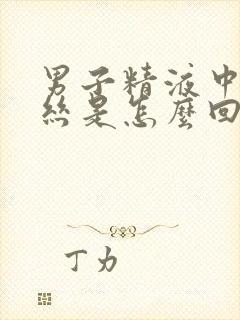 男子精液中
丝是怎麼回
丁力